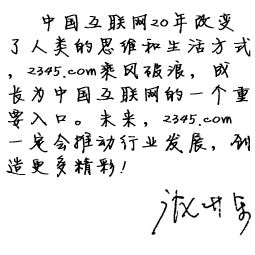 中国互联网20年改变
了人类的思维和生活方式
，2345.com乘风破浪，成
长为中国互联网的一个重
要入口。未来，2345.com
一定会推动行业发展，创
造更多精彩！